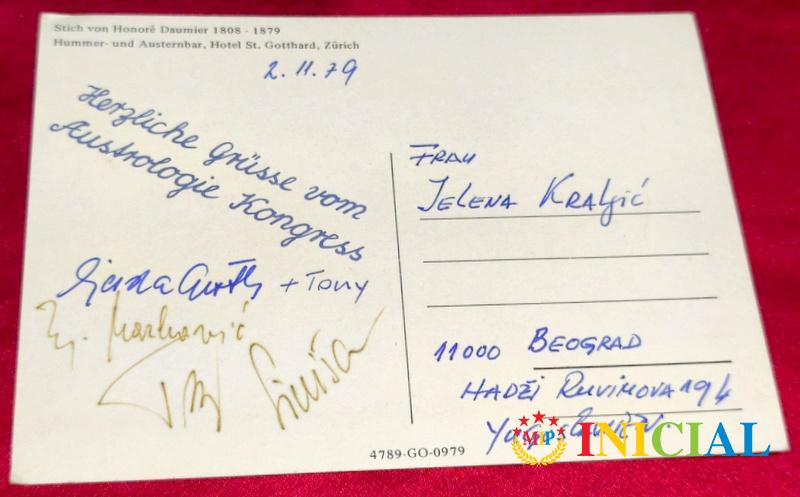 Stich von Honoré Daumier 1808 - 1879
Hummer- und Austernbar, Hotel St. Gotthard, Zürich
2.11.79
Herzliche Grüsse vom
Austrologie Kongress
+ Tony
Marković
Siniša
FRAU
JELENA KRALJIĆ
11000 BEOGRAD
HADŽI RUVIMOVA 19
4789-GO-0979
MIP INICIAL